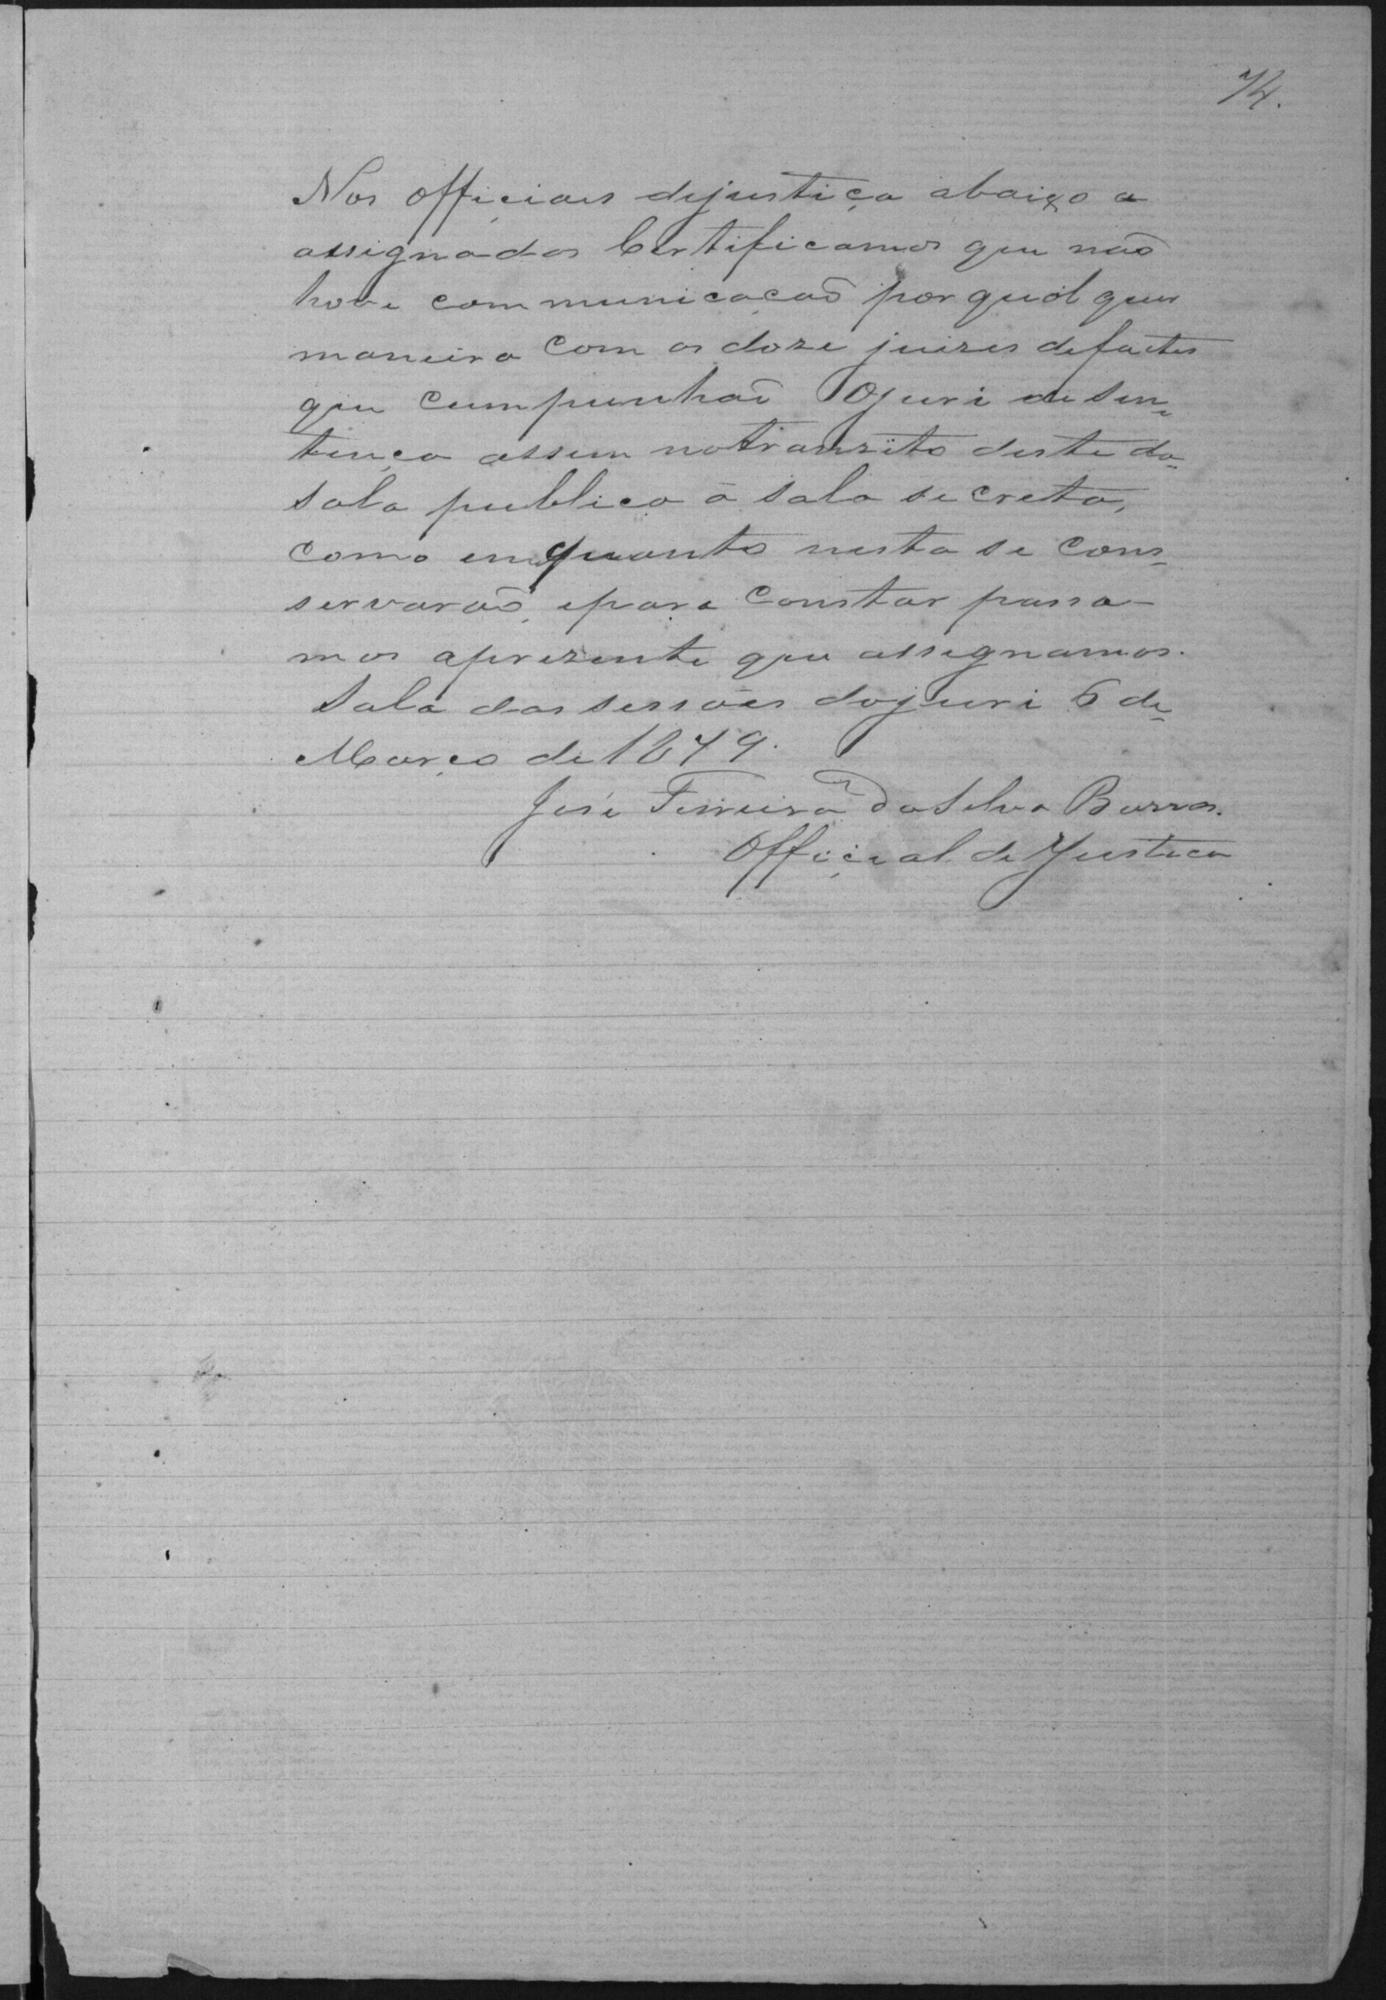 74.
Nos officiais dejustiça abaixo a
assignados Certificamos que não
hove communicacaõ por qual quer
maneira com os doze juizes defactos
que cumpunhaõ Ojuri de Sen=
tença assim notranzito deste da=
Sala publica á Sala secreta,
como enquanto nesta se cons=
servaraõ, epara Constar passa-
mos aprezente que assignamos.
Sala das sessões dojuri 6 de=
Março de 1879.
José Ferreira da Silva Barros.
Official de Justica